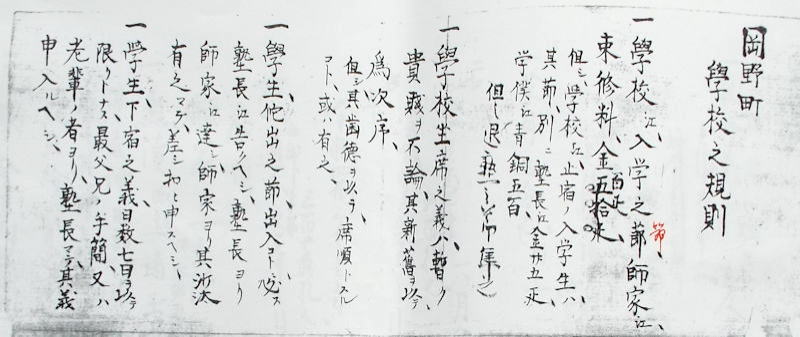 岡野町
學校之規則
一學校江、入学之節師家江、
節
束修料、金五拾疋
百疋
但シ学校江、止宿ノ入学生ハ
其節、別ニ塾長江金廿五疋
学僕江青銅五百、
但シ退塾之節准之
一學校坐席之義ハ暫ク
貴賤ヲ不論、其新舊ヲ以テ
為次序、
但シ其齒德ヲ以テ、席順トスル
コト、或ハ有之、
一學生、他出之節出入コトニ必ズ
塾長江告クヘシ、塾長ヨリ
師家江達シ師家ヨリ其沙汰
有之マデ、差シ扣ヒ申スヘシ、
一學生、下宿之義日数七日ヲ以テ
限リトナス最父兄ノ手簡又ハ
老輩ノ者ヨリ、塾長マデ其義
申入ルヘシ、